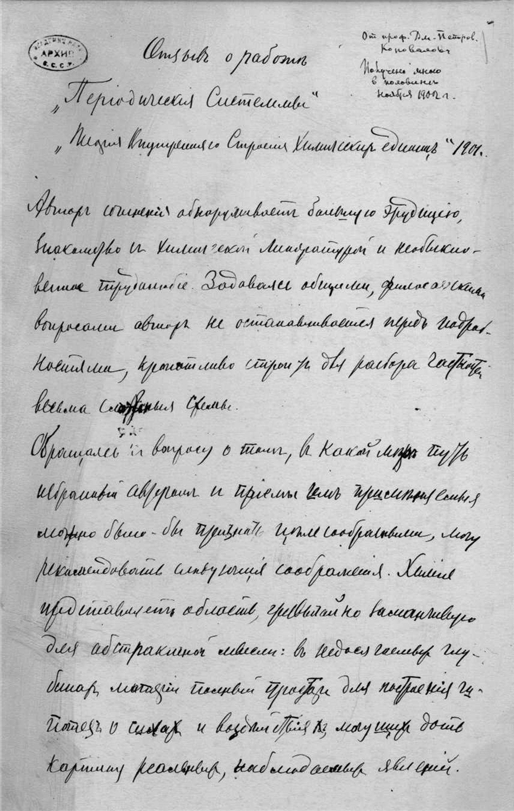 АРХИВ
С.С.С.Р.
От проф. Дм. Петров.
Коновалова
Получено мною
в половинѣ
ноября 1902 г.
Отзывъ о работѣ
„Періодическія Системы“
„Теорія Внутренняго Строенія Химическихъ единицъ“ 1901.
Авторъ сочиненія обнаруживаетъ большую эрудицію,
знакомство съ химической литературой и необыкно-
венное трудолюбіе. Задаваясь общими, философскими
вопросами авторъ не останавливается передъ подроб-
ностями, кропотливо строитъ для разбора частностей
весьма сложныя схемы.
Обращаясь къ вопросу о томъ, въ какой мѣрѣ путь
избранный авторомъ и пріемы имъ примѣненные
можно было-бы признать цѣлесообразными, могу
рекомендовать слѣдующія соображенія. Химія
представляетъ область, чрезвычайно заманчивую
для абстрактной мысли: въ недосягаемыхъ глу-
бинахъ матеріи полный просторъ для построенія ги-
потезъ о силахъ и воздѣйствіяхъ могущихъ дать
картину реальныхъ, наблюдаемыхъ явленій.